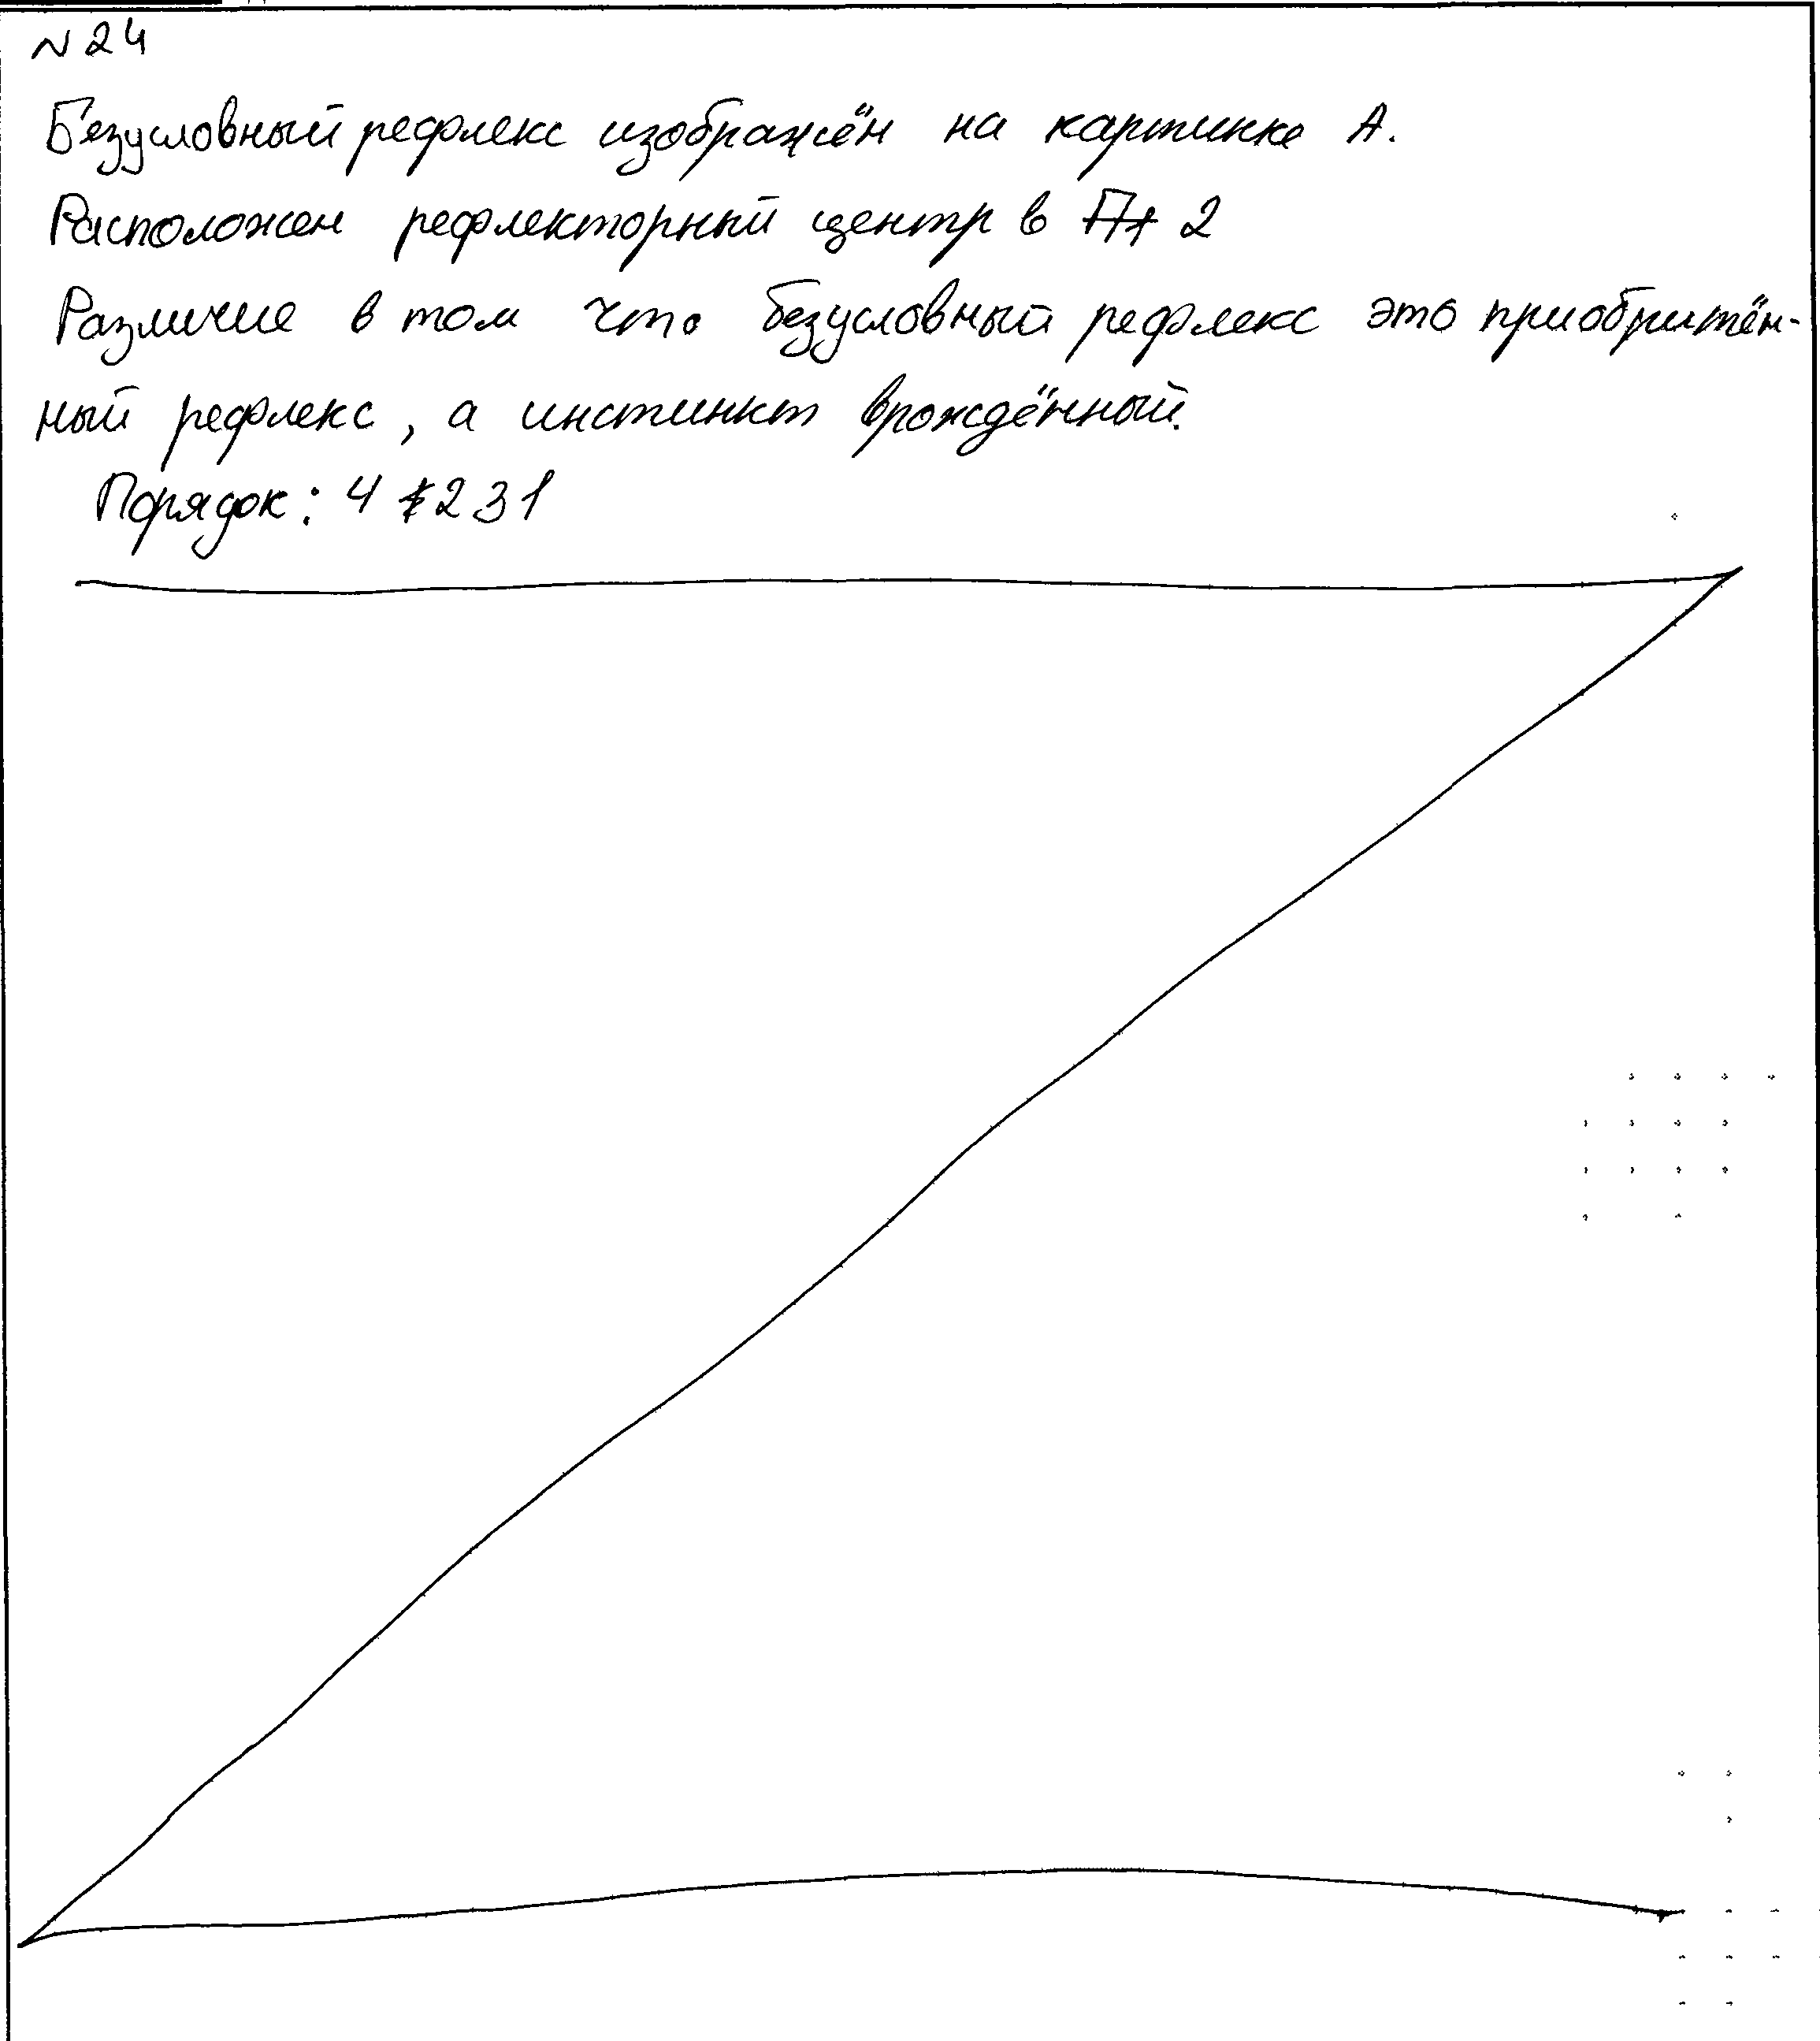 N 24
Безусловный рефлекс изображён на картинке А.
Расположен рефлекторный центр в 2
Различие в том что безусловный рефлекс это приобритён-
ный рефлекс, а инстинкт врождённый.
Порядок: 4 2 3 1